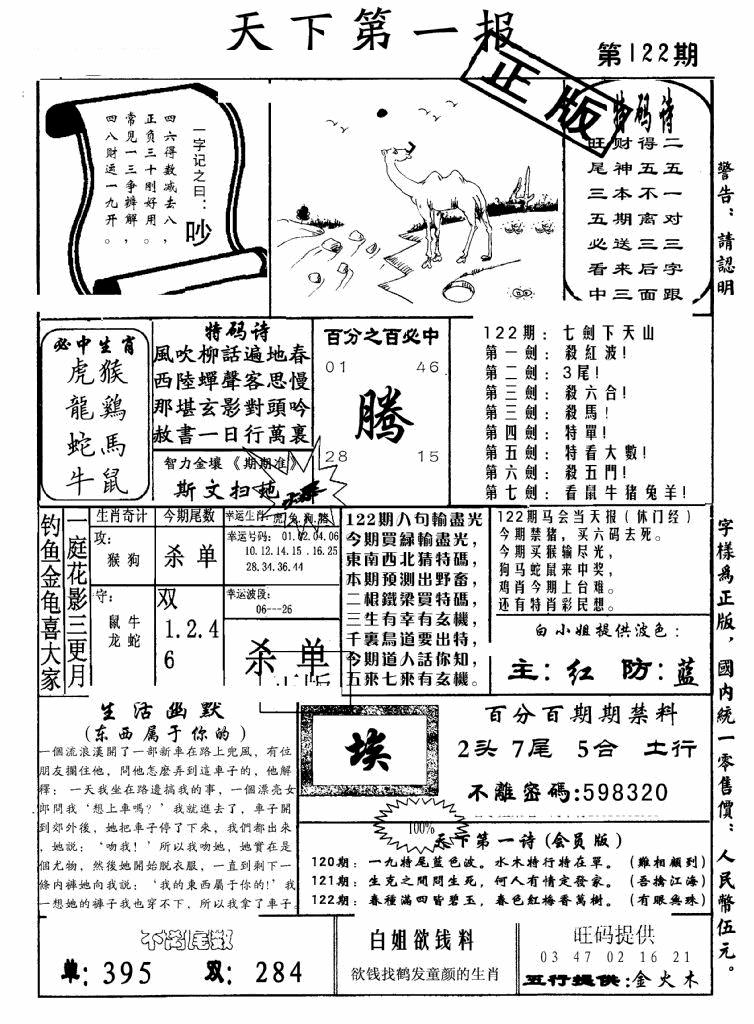 天下第一报
第122期
正版
一字记之曰：
吵
四六得数减去八，
正负三十刚好用。
常见一三争辨解，
四八财运一九开。
特码诗
旺财得二
尾神五五
三本不一
五期离对
必送三三
看来后字
中三面跟
警告：請認明
字樣爲正版，國內統一零售價：人民幣伍元。
必中生肖
虎猴
龍鷄
蛇馬
牛鼠
特码詩
風吹柳話遍地春
西陸蟬聲客思慢
那堪玄影對頭吟
赦書一日行萬裏
智力金壤《期期准》
斯文扫地
百分之百必中
01 46
腾
28 15
122期：七劍下天山
第一劍：殺紅波!
第二劍：3尾!
第三劍：殺六合!
第三劍：殺馬!
第四劍：特單!
第五劍：特看大數!
第六劍：殺五門!
第七劍：看鼠牛猪兔羊!
钓鱼金龟喜大家
一庭花影三更月
生肖奇计
攻：
猴狗
守：
鼠牛
龙蛇
今期尾数
杀单
双
1.2.4
6
幸运生肖：虎兔狗猪
幸运号码：01.02.04.06
10.12.14.15.16.25
28.34.36.44
幸运波段：
06---26
杀单
122期八句輸盡光
今期買緑輸盡光，
東南西北猜特碼，
本期預測出野畜，
二根鐵梁買特碼，
三生有幸有玄機，
千裏鳥道要出特，
今期道人話你知，
五來七來有玄機。
122期马会当天报（休门经）
今期禁猪，买六码去死。
今期买猴输尽光，
狗马蛇鼠来中奖，
鸡肖今期上台难。
还有特肖彩民想。
白小姐提供波色：
主：红 防：蓝
生活幽默
(东西属于你的)
一個流浪漢開了一部新車在路上兜風，有位
朋友攔住他，問他怎麽弄到這車子的，他解
釋： 一天我坐在路邊搞我的事，一個漂亮女
郎問我‘想上車嗎?’我就進去了，車子開
到郊外後，她把車子停了下來，我們都出來
，她説：‘吻我!’所以我吻她，她實在是
個尤物，然後她開始脱衣服，一直到剩下一
條内褲她向我説：‘我的東西屬于你的!’我
一想她的褲子我也穿不下，所以我拿了車子。
埃
100%
百分百期期禁料
2头 7尾 5合 土行
不離密碼:598320
天下第一诗(会员版)
120期：一九特尾蓝色波。水木特行特在單。（難相顧到）
121期：生克之間問生死，何人有情定發家。（吾擒江海）
122期：春種滿四皆碧玉，春色紅梅香萬樹。（有眼無珠）
不离尾数
单：395 双：284
白姐欲钱料
欲钱找鹤发童颜的生肖
旺码提供
03 47 02 16 21
五行提供:金火木